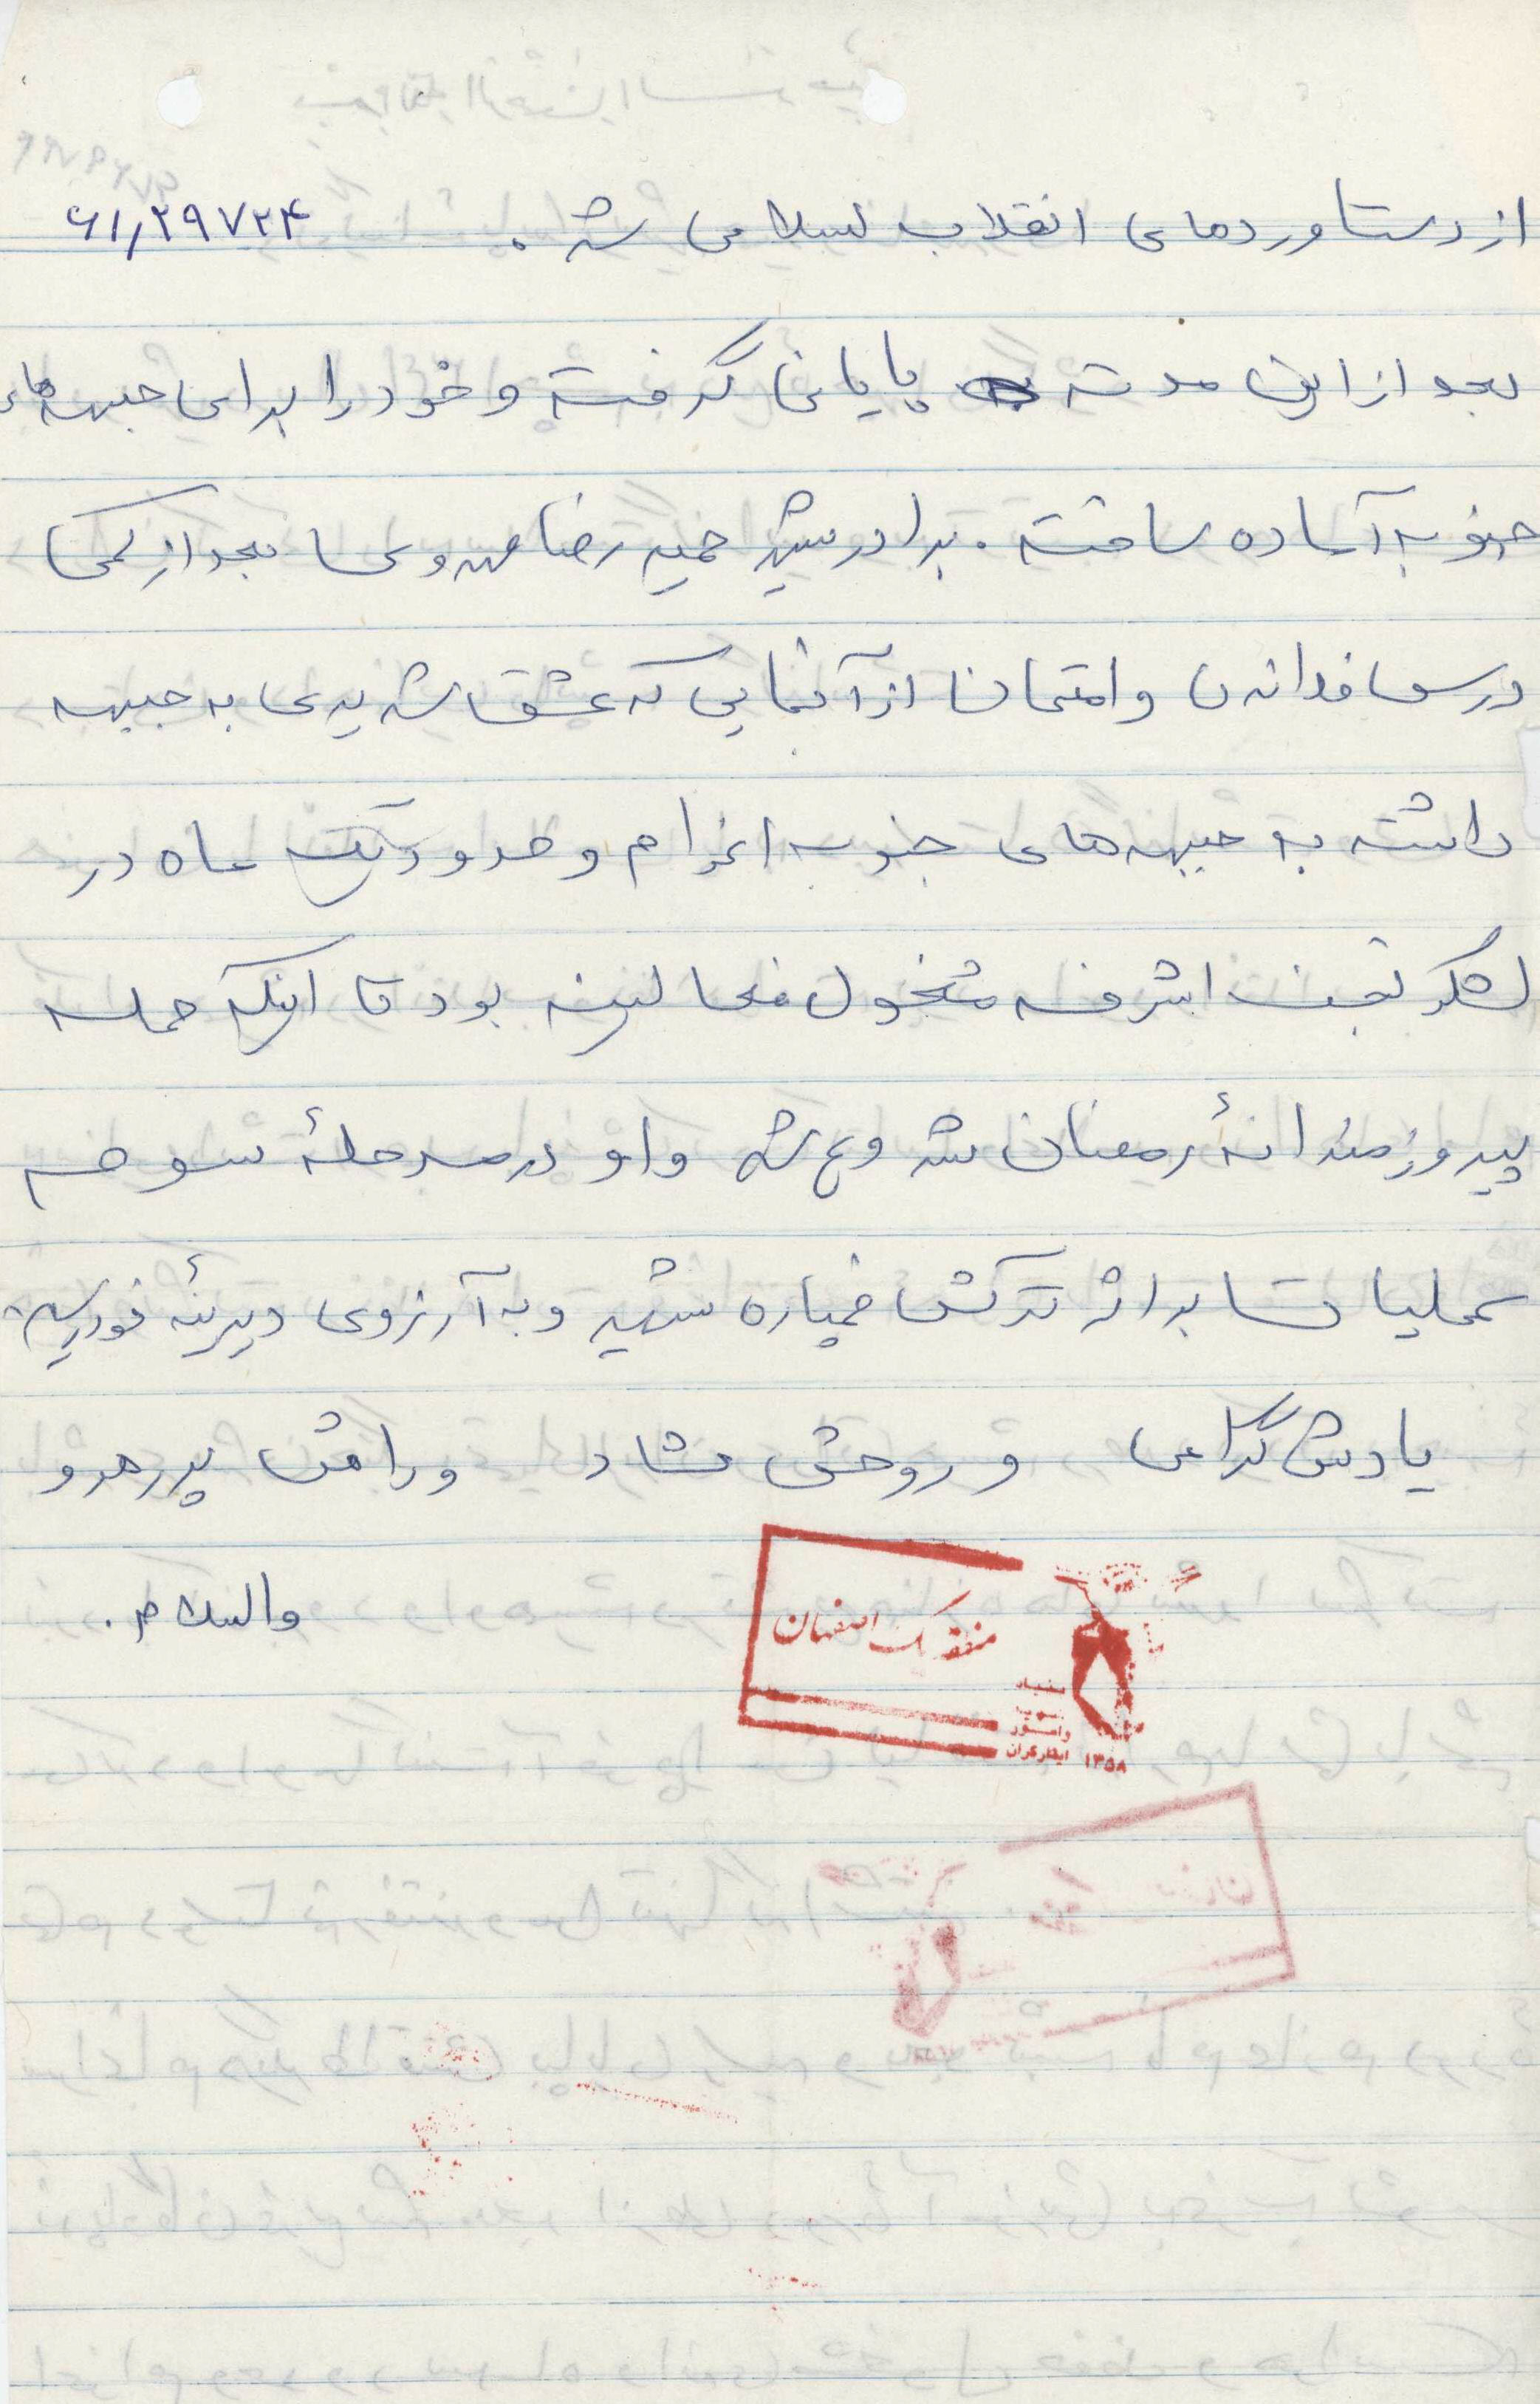 از دستاوردهای انقلاب اسلامی شد. ۶۱٫۲۹۷۲۴
بعد از این مدت پایان گرفت و خود را برای جبهه‌های
جنوب آماده ساخت. برادر شهید حمید رضا بعد از کمی
درس خواندن و امتحان از آنجایی که عشق شدیدی به جبهه
داشت به جبهه‌های جنوب اعزام و حدود یک ماه در
لشکر نجف اشرف مشغول فعالیت بود تا اینکه حمله
پیروزمندانهٔ رمضان شروع شد و او در مرحلهٔ سوم
عملیات بر اثر ترکش خمپاره شهید و به آرزوی دیرینهٔ خود رسید.
یادش گرامی و روحش شاد و راهش پر رهرو
والسلام.
منطقه یک اصفهان
بنیاد
شهید
وامور
ایثارگران ۱۳۵۸